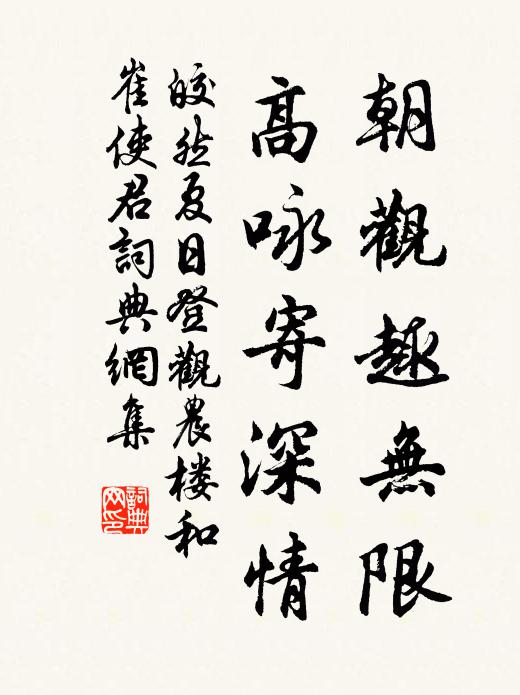 朝觀趣無限
高咏寄深情
皎然夏日登觀農楼和
崔使君詞典網集
詞典网印